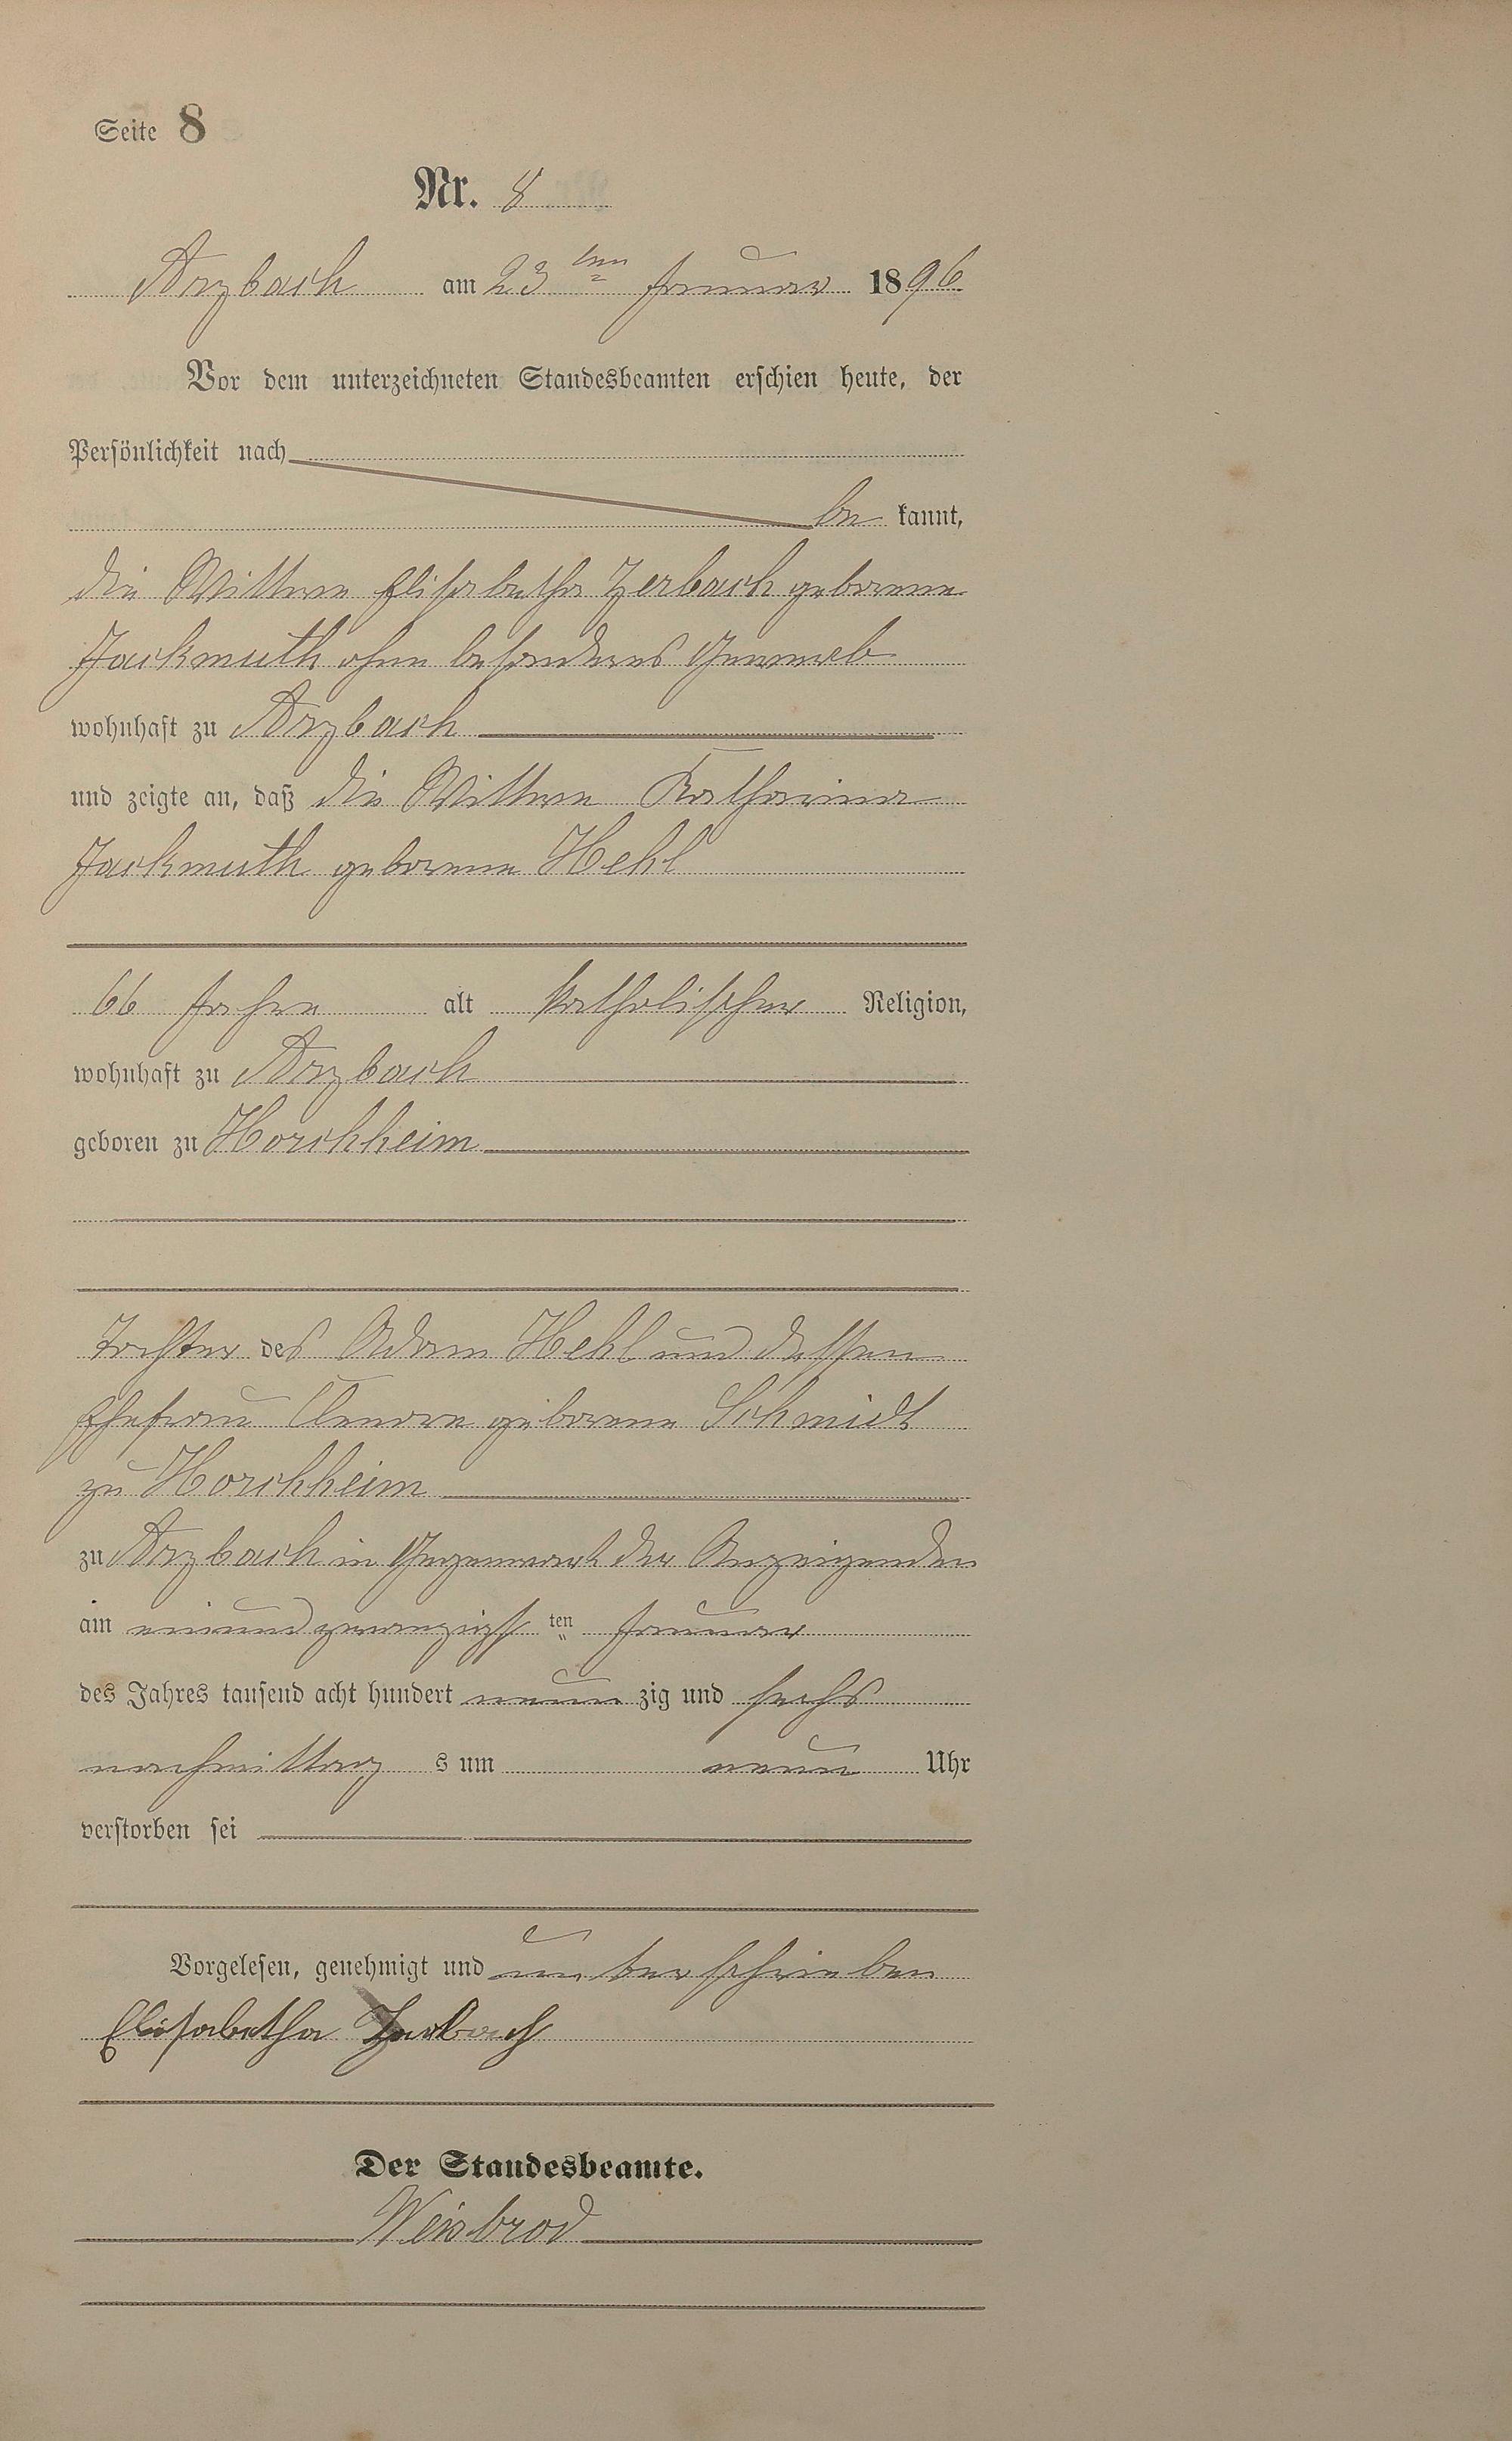 Seite 8
Nr. 8
Arzbach am 23 ten Januar 1896
Vor dem unterzeichneten Standesbeamten erschien heute, der
Persönlichkeit nach
be kannt,
die Wittwe Elisabetha Zerbach geborene
Jackmuth ohne besonderes Gewerb
wohnhaft zu Arzbach
und zeigte an, daß die Wittwe Katharina
Jackmuth geborene Hehl
66 Jahre alt katholischer Religion,
wohnhaft zu Arzbach
geboren zu Horchheim
Tochter des Adam Hehl und dessen
Ehefrau geborene Schmidt
zu Horchheim
zu Arzbach in Gegenwart der Anzeigenden
am einundzwanzigst ten Januar
des Jahres tausend acht hundert neun zig und sechs
nachmittag s um neun Uhr
verstorben sei
Vorgelesen, genehmigt und unterschrieben
Elisabetha Zerbach
Der Standesbeamte.
Weisbrod